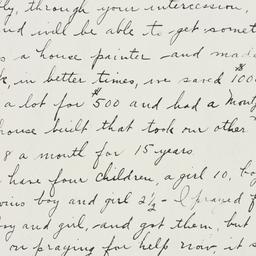 through your intercession,
and will be able to get somet
a house painter and mad
in better times, we saved $100
a lot for $500 and had a mort
house built that took our other
8 a month for 15 years
have four children, a girl 10, bo
twins boy and girl 2½ - I prayed f
boy and girl, and got them, but
on praying for help now, it s